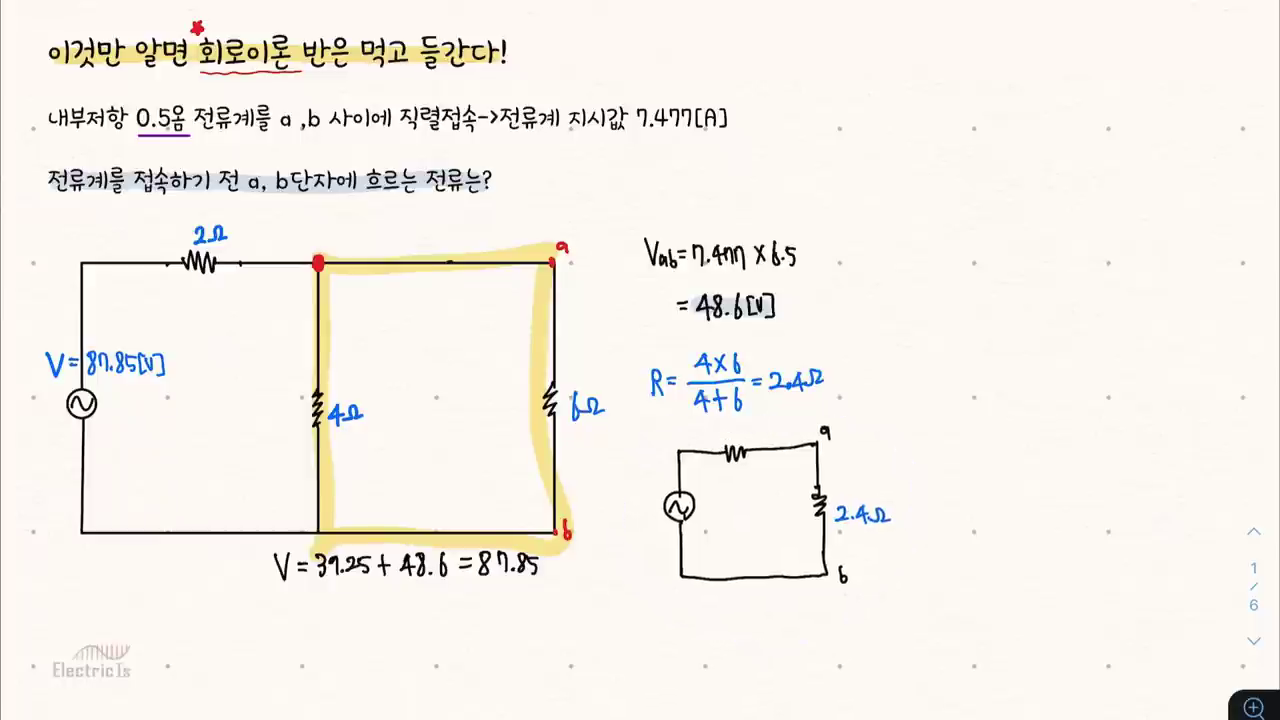 이것만 알면 회로이론 반은 먹고 들간다!
내부저항 0.5옴 전류계를 a ,b 사이에 직렬접속->전류계 지시값 7.477[A]
전류계를 접속하기 전 a, b단자에 흐르는 전류는?
2Ω
a
V=87.85[V]
4Ω
6Ω
b
V=39.25+48.6=87.85
Vab=7.477×6.5
=48.6[V]
R=4×6/4+6=2.4Ω
a
2.4Ω
b
1
/
6
Electric Is